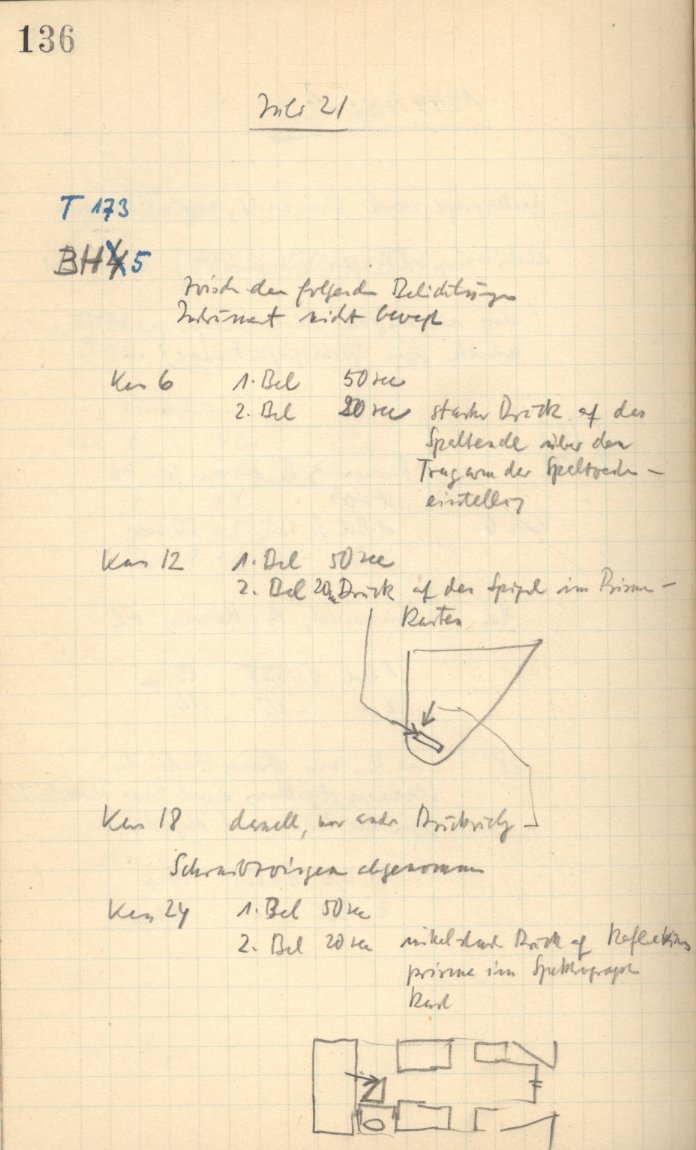 136
Juli 21
T 173
BH 5
Zwischen den folgenden Belichtungen
Instrument nicht bewegt
Kas 6 1. Bel 50 sec
2. Bel 20 sec starker Druck auf das
Spaltende über den
Tragarm der Spaltweiten-
einstellung
Kas 12 1. Bel 50 sec
2. Bel 20 Druck auf den Spiegel im Prismen-
kasten
Kas 18 dasselbe, nur andere Druckricht
Schraubzwingen abgenommen
Kas 24 1. Bel 50 sec
2. Bel 20 sec Druck auf Reflexions
prisma im Spektrograph